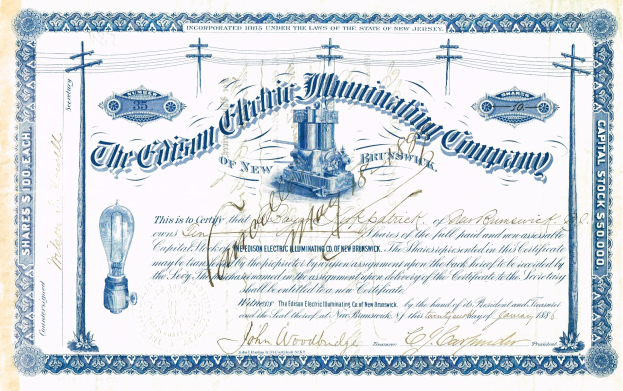 INCORPORATED 1885 UNDER THE LAWS OF THE STATE OF NEW JERSEY.
NUMBER
35
SHARES
10
The Edison Electric Illuminating Company
OF NEW BRUNSWICK.
SHARES $100 EACH.
CAPITAL STOCK $50,000.
Countersigned
Secretary
This is to Certify that Kirkpatrick of New Brunswick N.J.
owns Ten Shares of the full paid and non-assessable
Capital Stock of THE EDISON ELECTRIC ILLUMINATING CO. OF NEW BRUNSWICK. The Shares represented in this Certificate
may be transferred by the proprietor having an assignment upon the back hereof to be recorded by
the Secy. named in the assignment upon delivery of the Certificate to the Secretary
shall be entitled to a new Certificate.
Witness The Edison Electric Illuminating Co. of New Brunswick, by the hand of its President and Treasurer
and the Seal thereof at New Brunswick, N.J. this day of January 1886
John Woodbridge Treasurer C. J. Carpender President
Cancelled
May 18 189